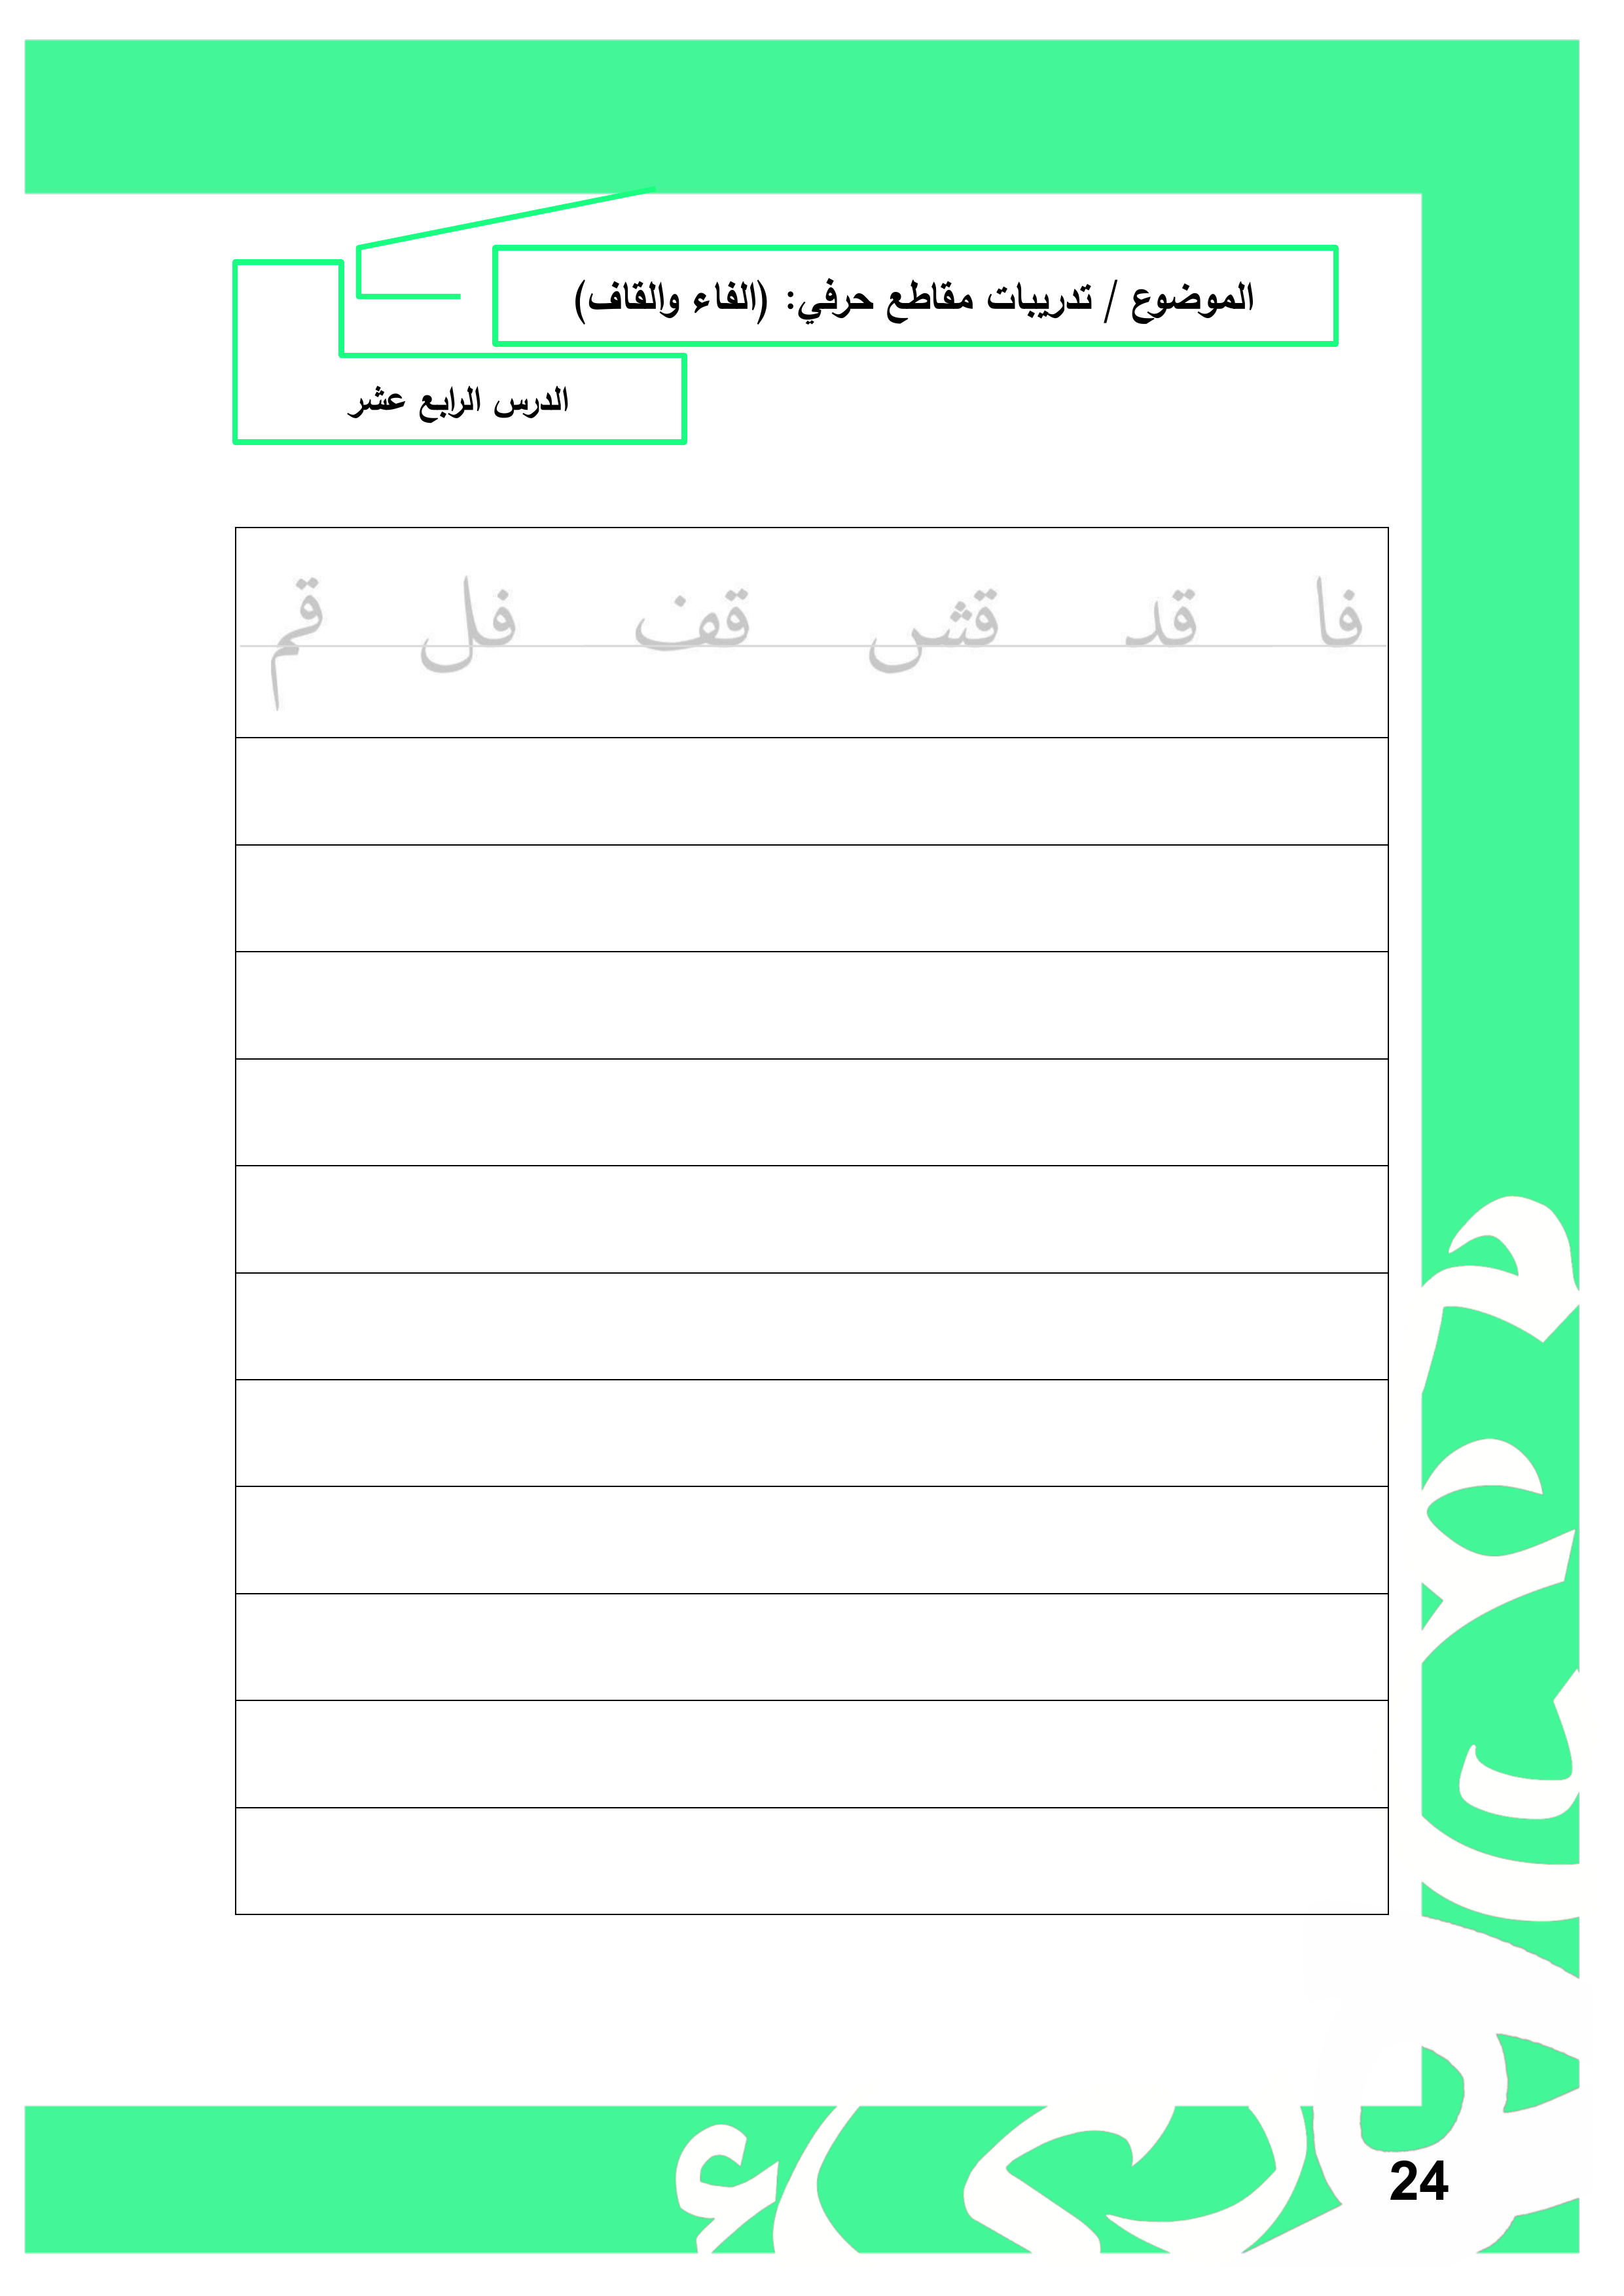 الموضوع / تدريبات مقاطع حرفي: (الفاء والقاف)
الدرس الرابع عشر
فا قد قش قف فل قم
24